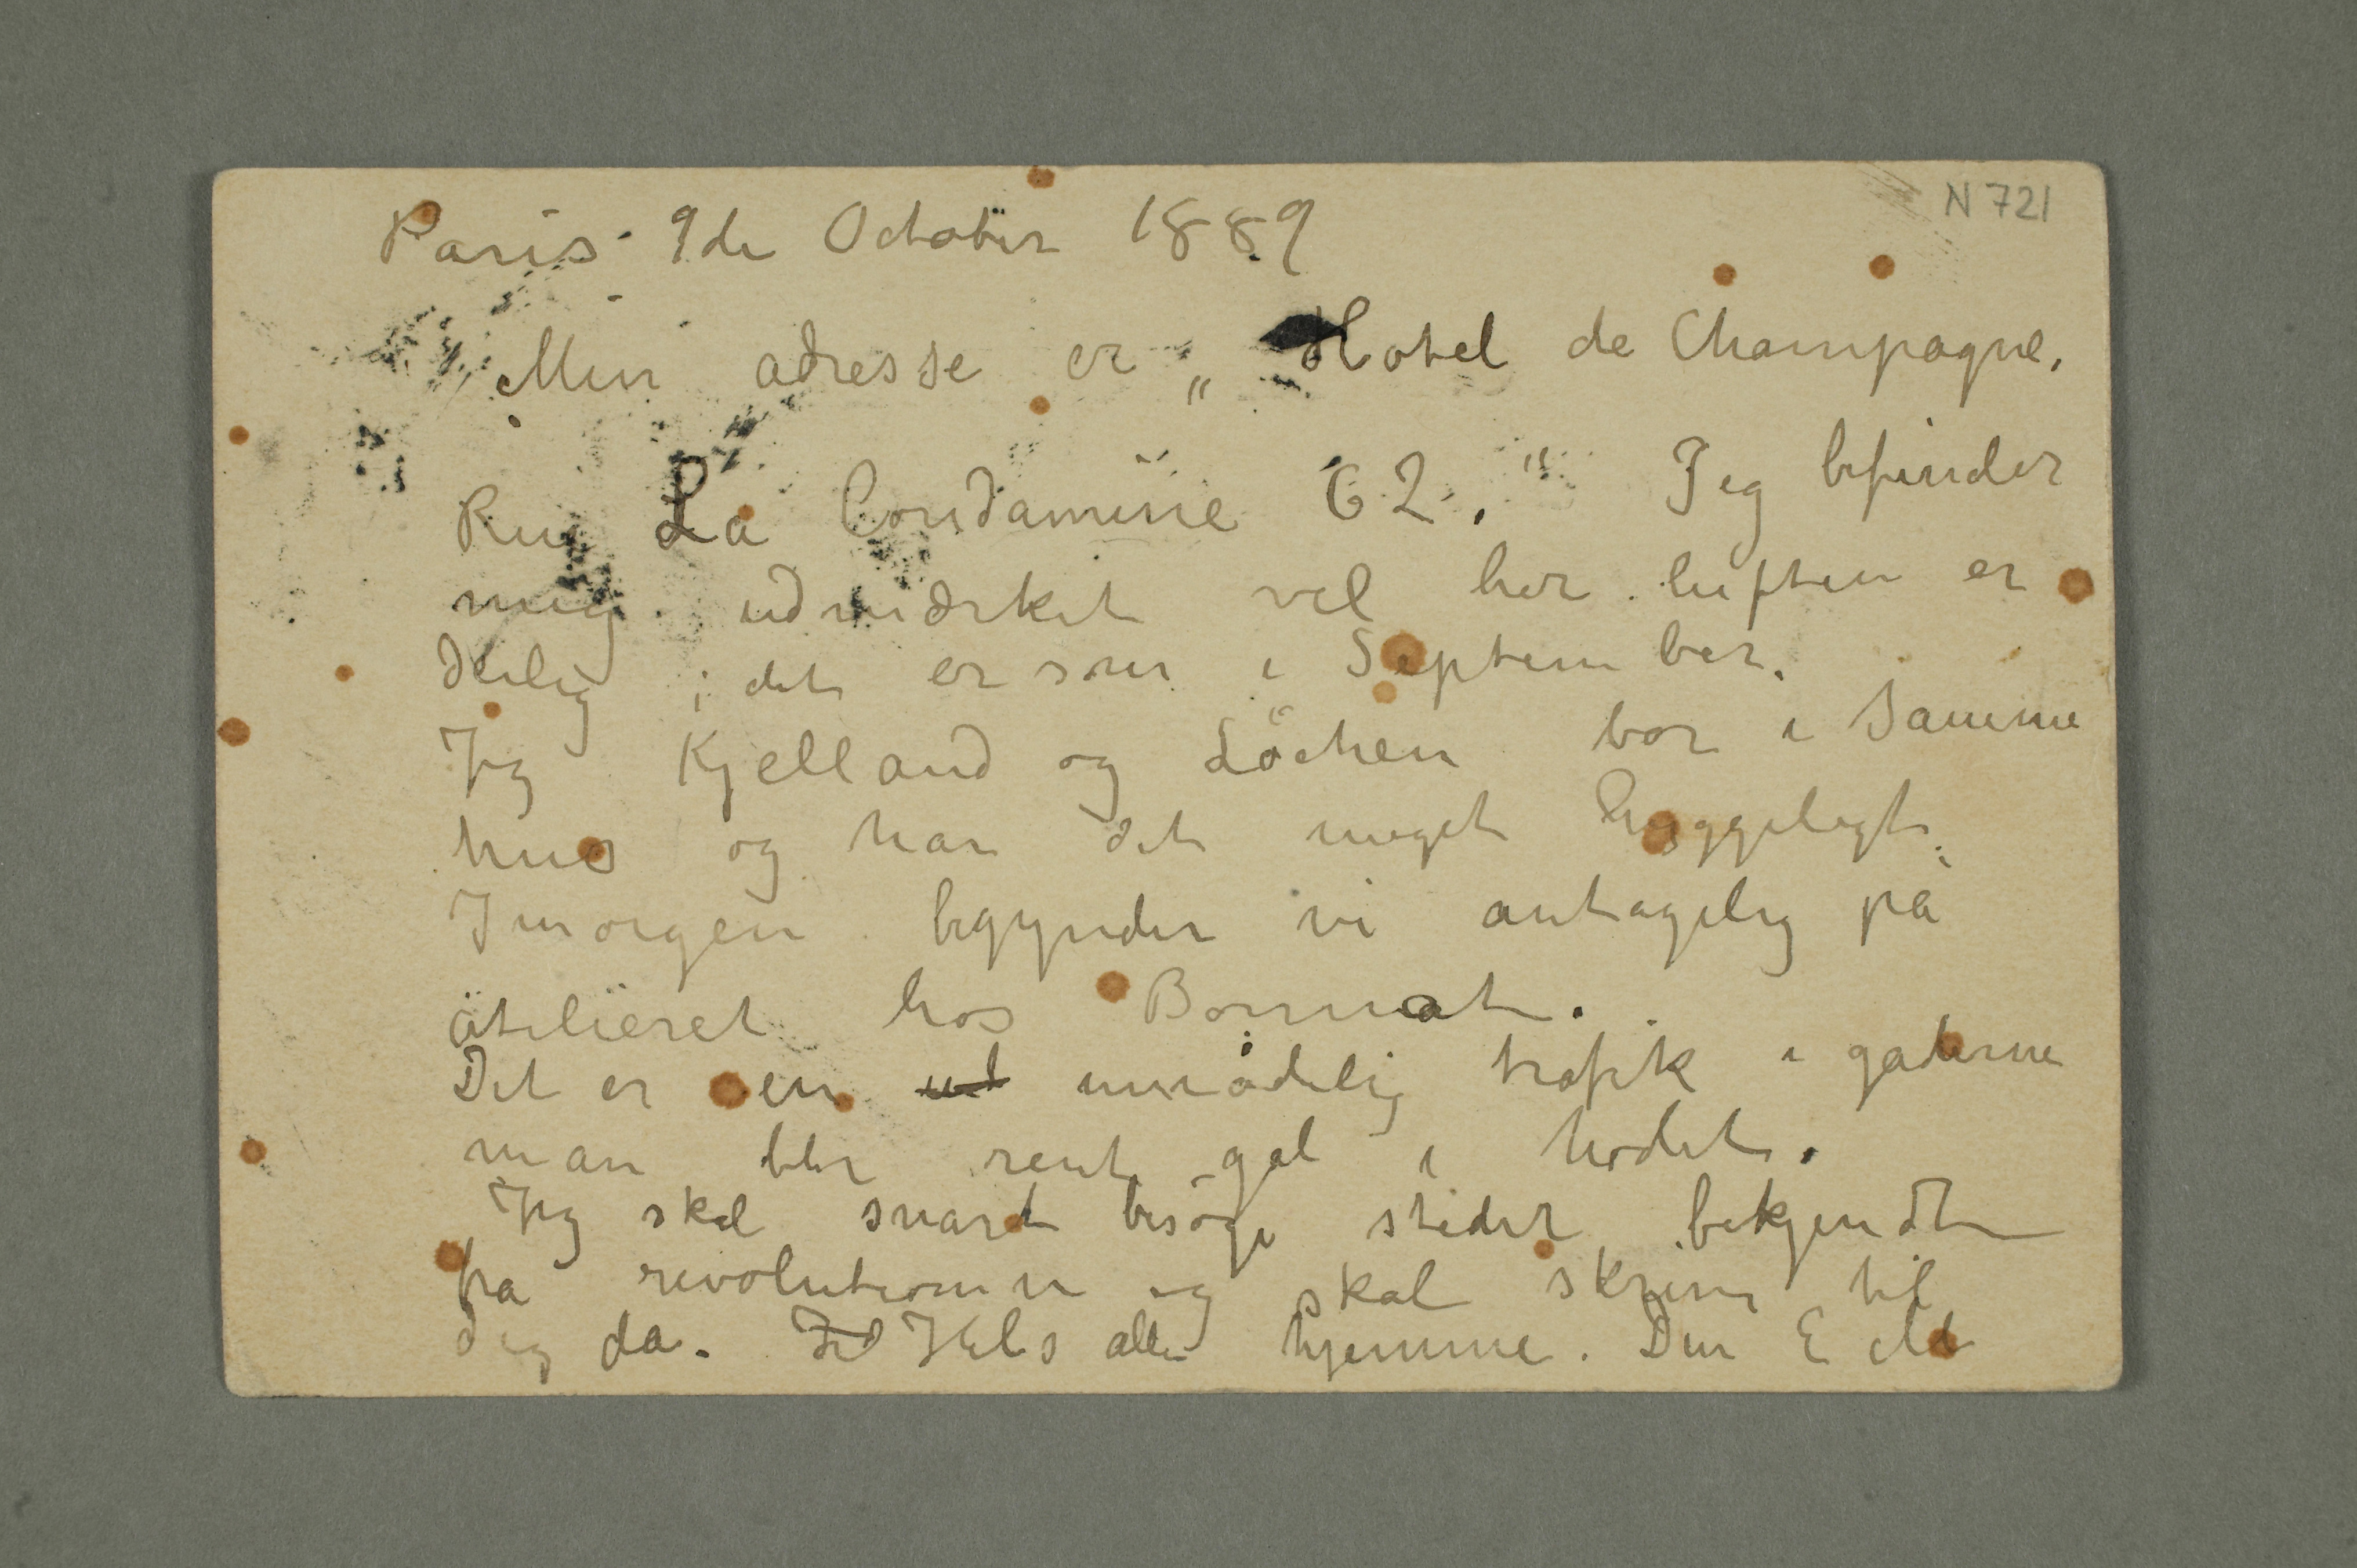 N 721
Paris 9de October 1889
Min adresse er „Hotel de Champagne.
Rue La Condamine 62." Jeg befinder
mig udmærket vel her. luften er
deilig; det er som i September.
Jeg Kjelland og Löchen bor i Samme
hus og har det meget hyggeligt.
Imorgen begynder vi antagelig på
atelieret hos Bonnat.
Det er en ud umådelig trafik i gaderne
man blir rent gal i hodet.
Jeg skal snart besøge steder bekjendt
fra revolutionen og skal skrive til
dig da. Hils alle hjemme. Din E M